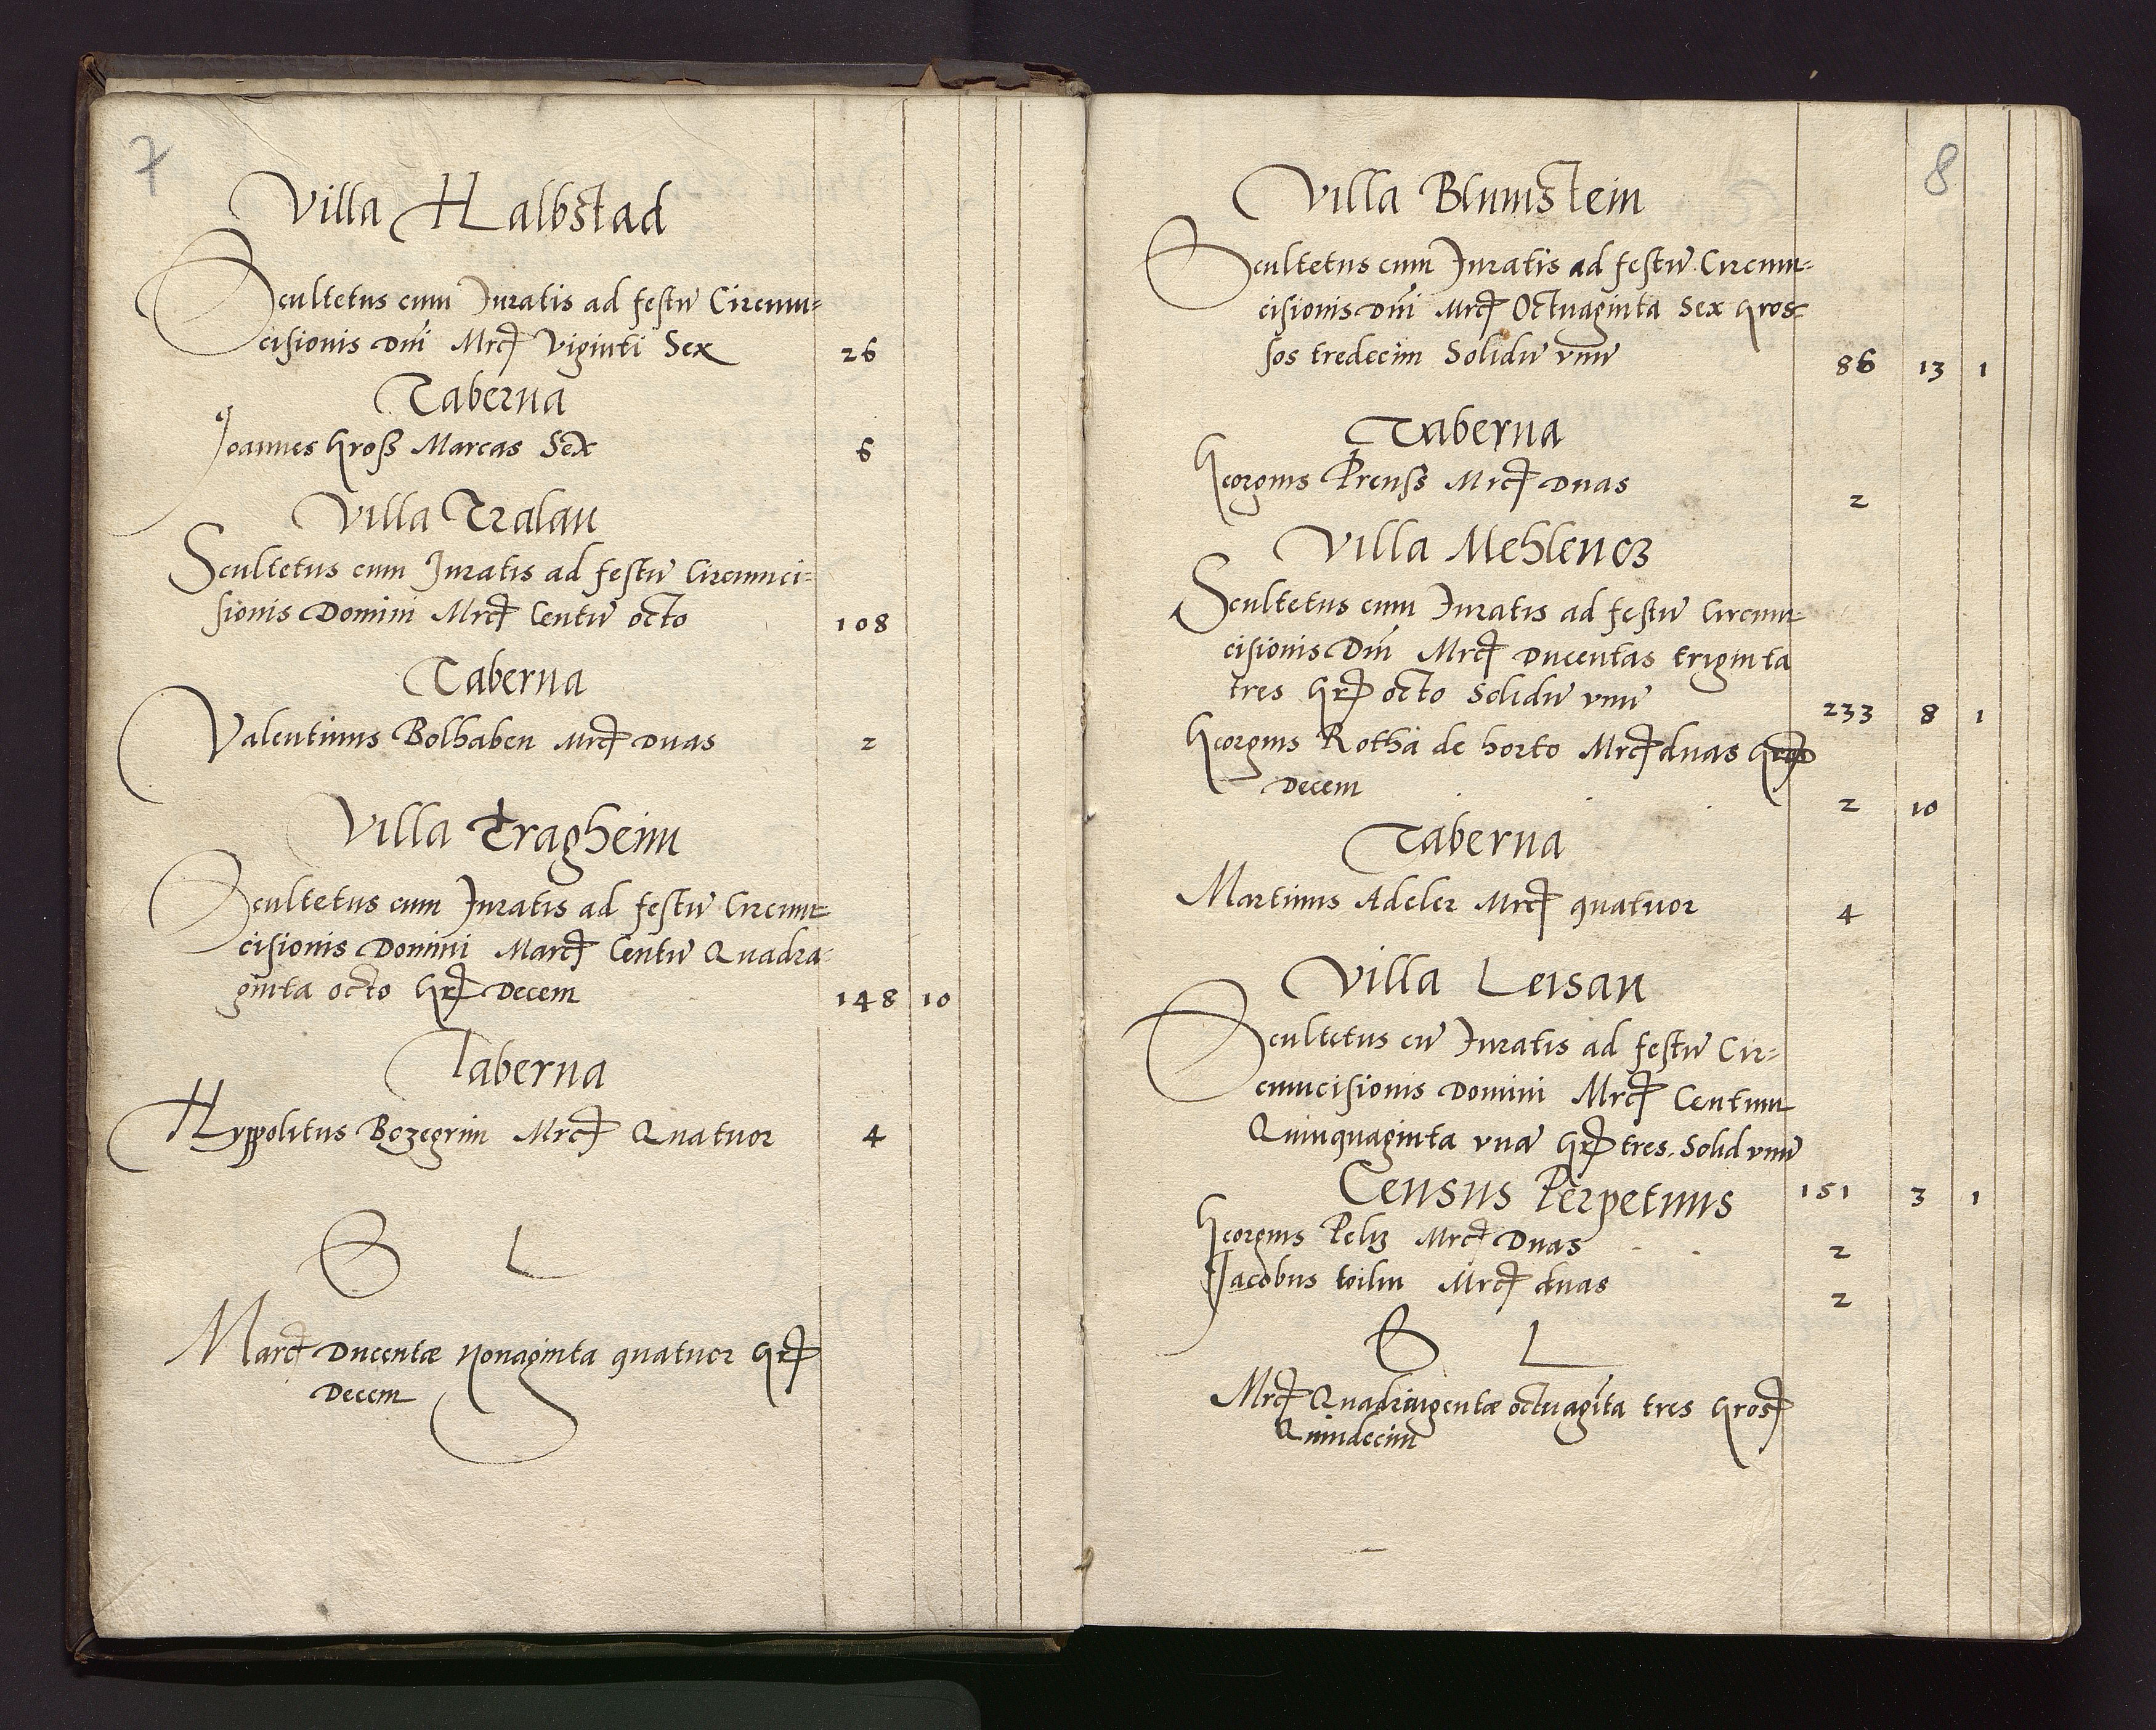 7
Villa Halbstad
Scultetus cum Juratis ad festũ Circum-
cisionis Dñi Mrc Viginti Sex 26
Taberna
Joannes Groß Marcas Sex 6
Villa Tralau
Scultetus cum Juratis ad festũ Circumci-
sionis Domini Mrc Centũ octo 108
Taberna
Valentinus Bolhaben Mrc Duas 2
Villa Tragheim
Scultetus cum Juratis ad festũ Circum-
cisionis Domini Marc Centũ Quadra-
ginta octo Gr Decem 148 10
Taberna
Hyppolitus Mrc Quatuor 4
S L
Marc Ducentæ Nonaginta quatuor Gr
Decem
8
Villa Blumstein
Scultetus cum Juratis ad festũ Circum-
cisionis Dñi Mrc Octuaginta Sex Gros-
sos tredecim Solidũ vnũ 86 13 1
Taberna
Georgius Preuss Mrc Duas 2
Villa Mehlencz
Scultetus cum Juratis ad festũ Circum-
cisionis Dñi Mrc Ducentas triginta
tres Gr octo Solidũ vnũ 233 8 1
Georgius Rothä de horto Mrc duas Gr
Decem 2 10
Taberna
Martinus Adeler Mrc quatuor 4
Villa Leisau
Scultetus cũ Juratis ad festũ Cir-
cumcisionis Domini Mrc Centum
Quinquaginta vnã Gr tres. Solid vnũ
Census Perpetuus 151 3 1
Georgius Peltz Mrc Duas 2
Jacobus Mrc duas 2
S L
Mrc Quadringentæ octuagĩta tres Gros
Quindecim